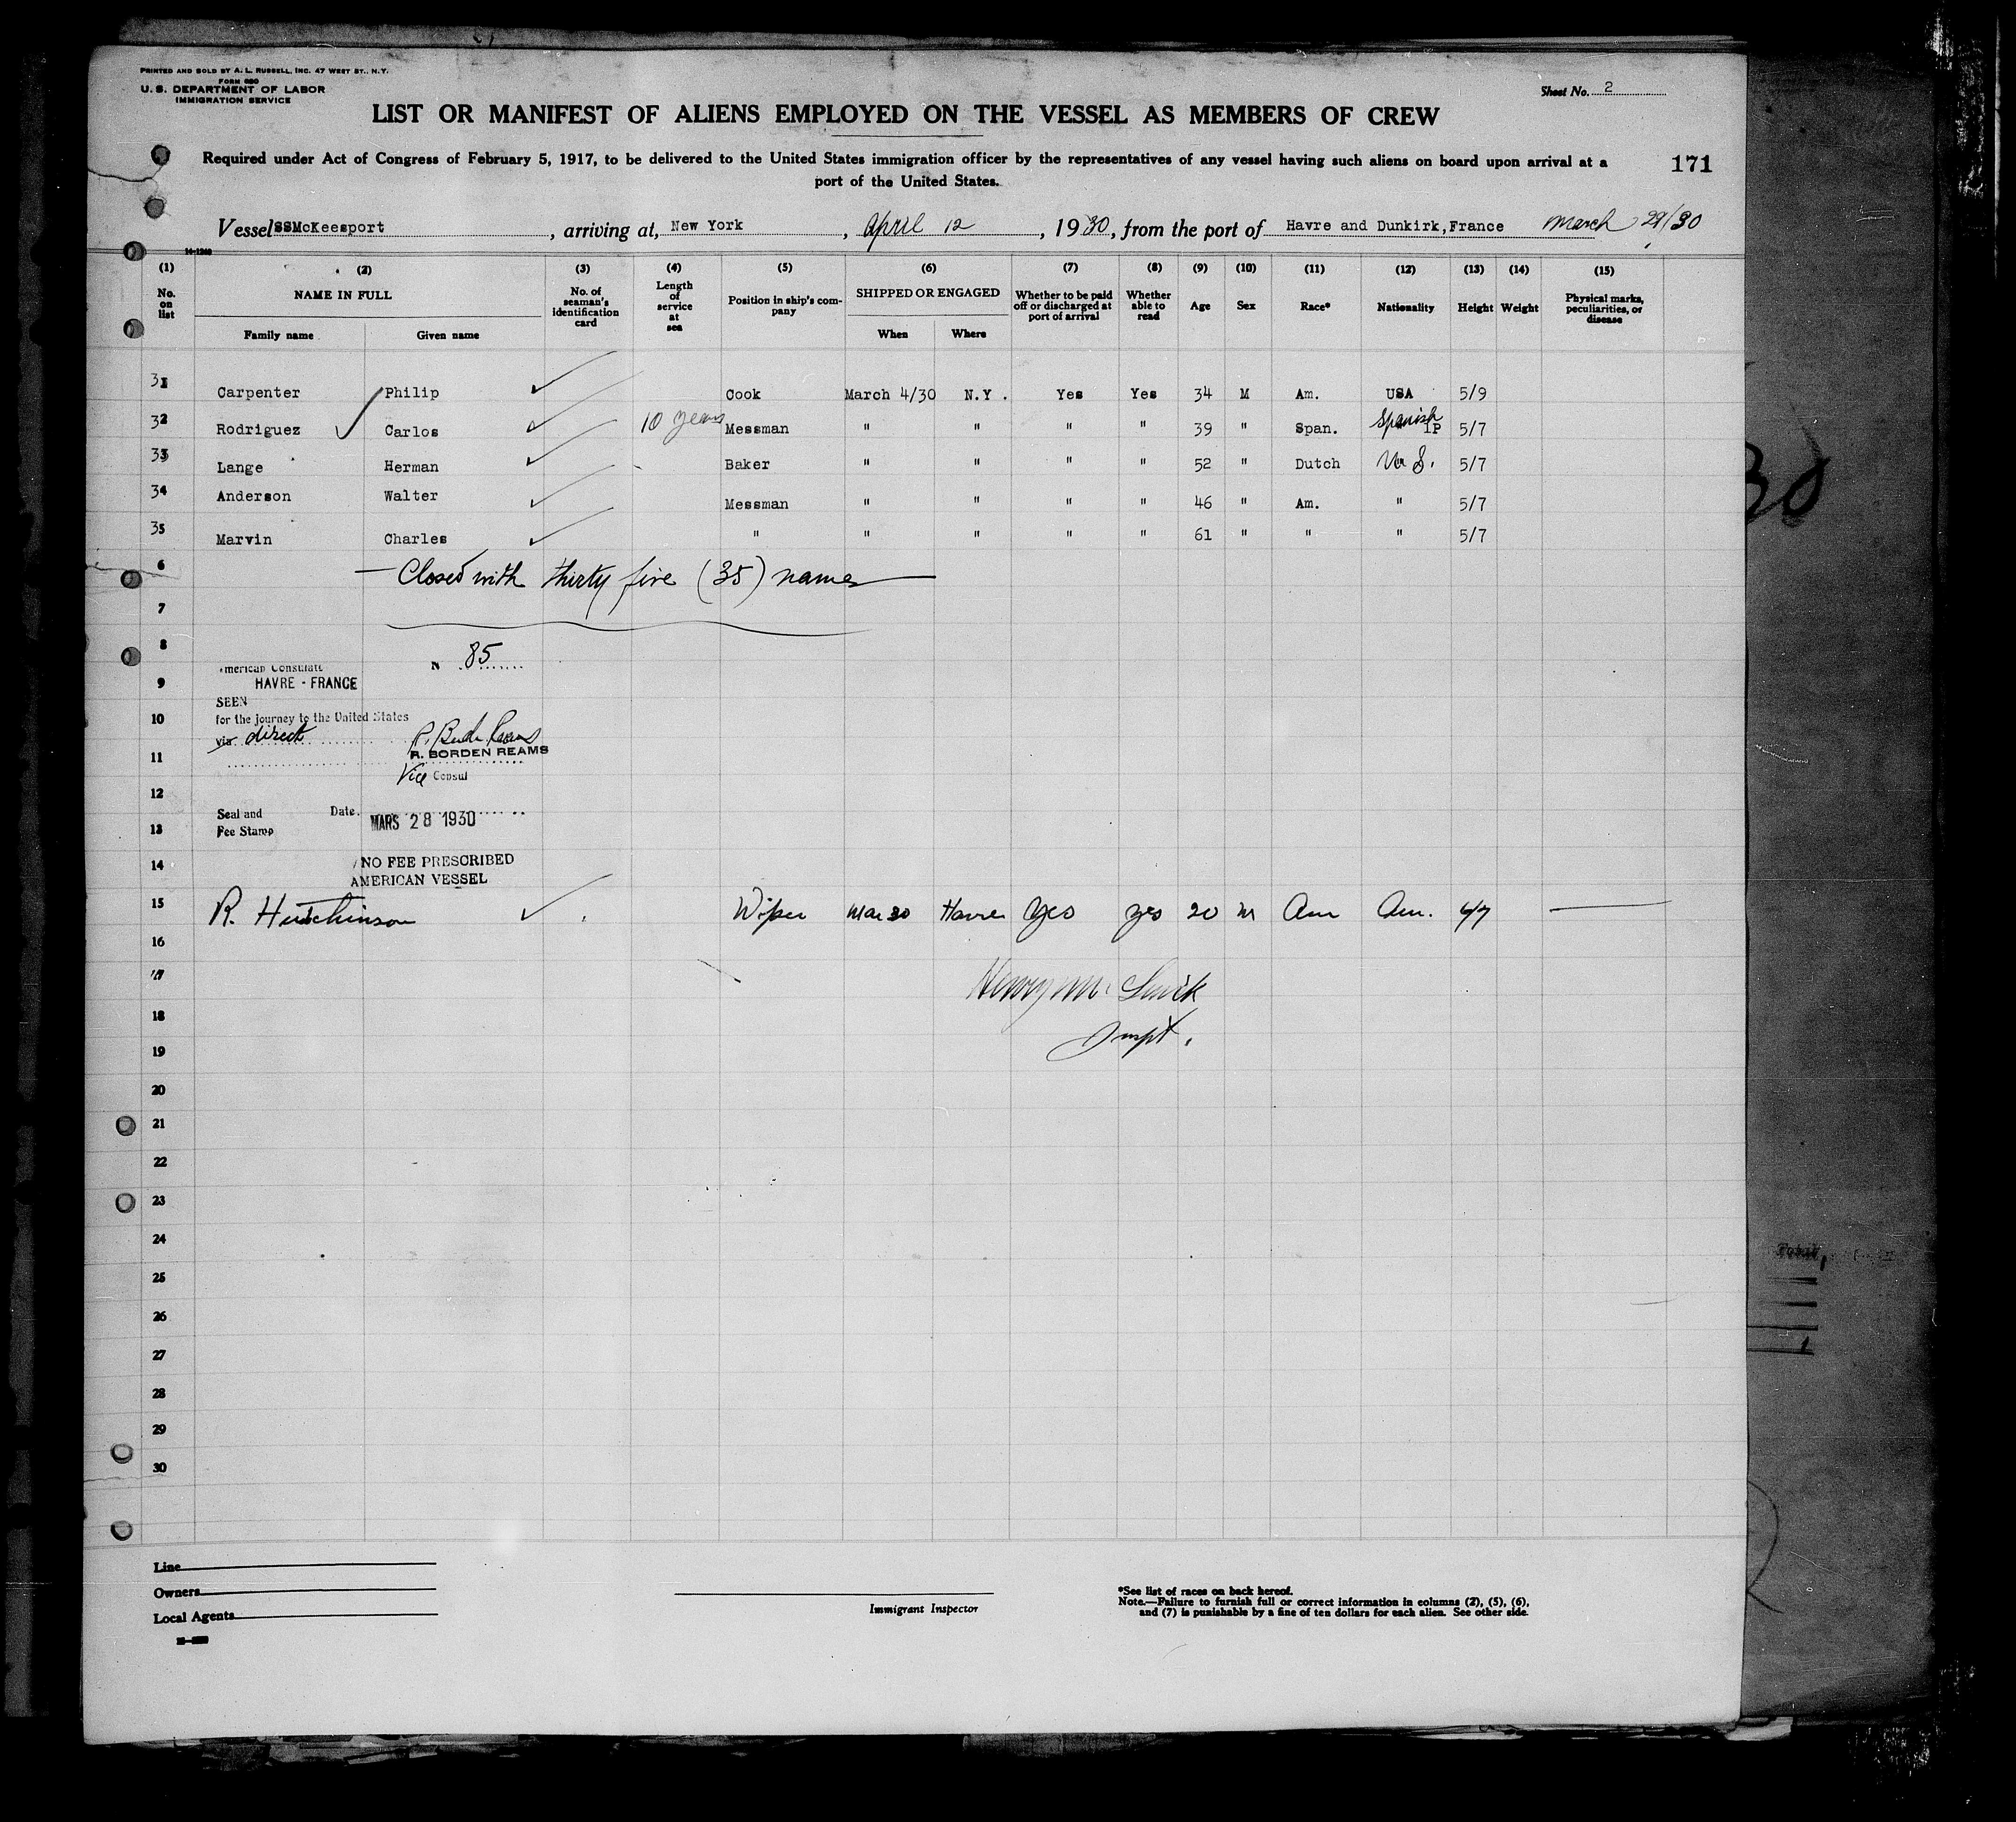 PRINTED AND SOLD BY A. L. RUSSELL, INC. 47 WEST ST., N.Y.
FORM 680
U. S. DEPARTMENT OF LABOR
IMMIGRATION SERVICE
Sheet No. 2
LIST OR MANIFEST OF ALIENS EMPLOYED ON THE VESSEL AS MEMBERS OF CREW
Required under Act of Congress of February 5, 1917, to be delivered to the United States immigration officer by the representatives of any vessel having such aliens on board upon arrival at a
port of the United States.
171
Vessel SSMcKeesport, arriving at, New York, April 12, 1930, from the port of Havre and Dunkirk, France March 29/30
14-1240
(1) (2) (3) (4) (5) (6) (7) (8) (9) (10) (11) (12) (13) (14) (15)
No. on list NAME IN FULL No. of seaman's identification card Length of service at sea Position in ship's company SHIPPED OR ENGAGED Whether to be paid off or discharged at port of arrival Whether able to read Age Sex Race* Nationality Height Weight Physical marks, peculiarities, or disease
Family name Given name When Where
31 Carpenter Philip Cook March 4/30 N.Y. Yes Yes 34 M Am. USA 5/9
32 Rodriguez Carlos 10 years Messman " " " " 39 " Span. Spanish 5/7
33 Lange Herman Baker " " " " 52 " Dutch U. S. 5/7
34 Anderson Walter Messman " " " " 46 " Am. " 5/7
35 Marvin Charles " " " " " 61 " " " 5/7
6 — Closed with thirty five (35) names —
7
8
N 85
American Consulate
9 HAVRE - FRANCE
SEEN
10 for the journey to the United States
via direct
11 R. BORDEN REAMS
Vice Consul
12
Seal and Date
13 Fee Stamp MARS 28 1930
14 NO FEE PRESCRIBED
AMERICAN VESSEL
15 R. Hutchinson Wiper Mar 30 Havre Yes yes 20 M Am Am. —
16
17 Henry M.
18
19
20
21
22
23
24
25
26
27
28
29
30
Line
Owners
Local Agents
Immigrant Inspector
*See list of races on back hereof.
Note.—Failure to furnish full or correct information in columns (2), (5), (6),
and (7) is punishable by a fine of ten dollars for each alien. See other side.